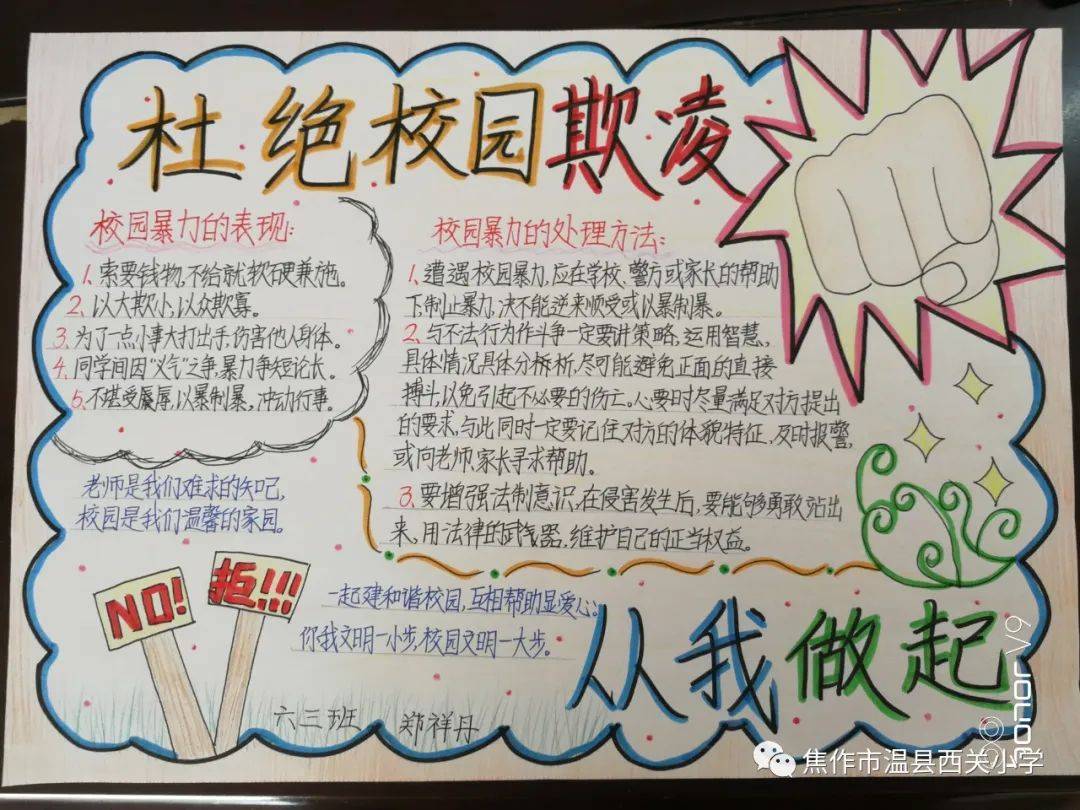 杜绝校园欺凌
校园暴力的表现:
1、索要钱物,不给就软硬兼施。
2、以大欺小,以众欺寡。
3、为了一点小事大打出手,伤害他人身体。
4、同学间因“义气”之争,暴力争短论长。
5、不堪受辱辱,以暴制暴,冲动行事。
老师是我们难求的知己,
校园是我们温馨的家园。
校园暴力的处理方法:
1、遭遇校园暴力,应在学校、警方或家长的帮助
下制止暴力,决不能逆来顺受或以暴制暴。
2、与不法行为作斗争一定要讲策略,运用智慧、
具体情况具体分析析,尽可能避免正面的直接
搏斗,以免引起不必要的伤亡。心要时尽量满足对方提出
的要求,与此同时一定要记住对方的体貌特征,及时报警,
或向老师、家长寻求帮助。
3、要增强法制意识,在侵害发生后,要能够勇敢站出
来,用法律的武器,维护自己的正当权益。
NO!
拒!!!
一起建和谐校园,互相帮助显爱心;
你我文明一小步,校园文明一大步。
从我做起
六三班 郑祥丹
honor V9
焦作市温县西关小学